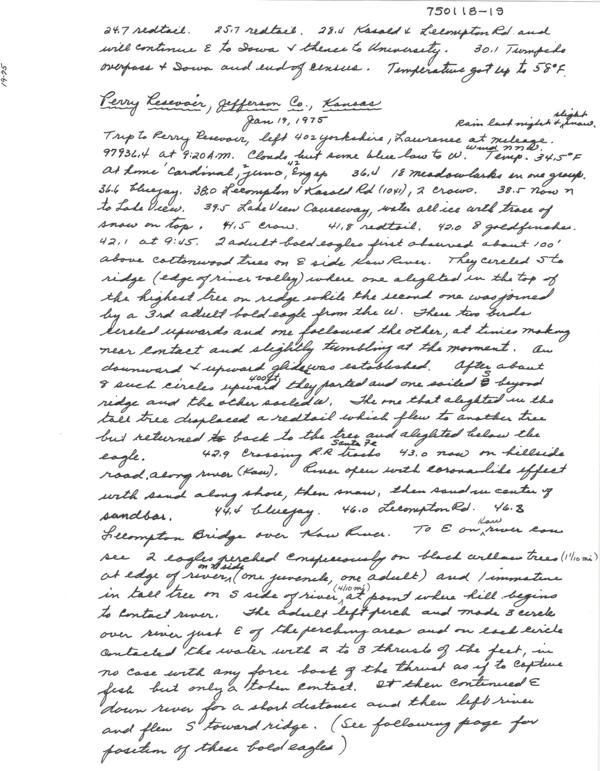 750118-19
1975
24.7 redtail. 25.7 redtail. 28.4 Kasold & Lecompton Rd. and
will continue E to Iowa & thence to University. 30.1 Turnpike
overpass & Iowa and end of census. Temperature got up to 58°F.
Perry Resevoir, Jefferson Co., Kansas
Jan 19, 1975
Rain last night & slight snow.
Trip to Perry Resevoir, left 402 Yorkshire, Lawrence at mileage
97936.4 at 9:20 A.M. Clouds, but some blue low to W. Wind NNW. Temp. 34.5°F
at home cardinal, 2 junco, 42 Eng sp 36.4 18 meadowlarks in one group.
36.6 bluejay. 38.0 Lecompton & Kasold Rd (1041), 2 crows. 38.5 now N
to Lake View. 39.5 Lake View Causeway, water all ice with trace of
snow on top. 41.5 crow. 41.8 redtail. 42.0 8 goldfinches.
42.1 at 9:45. 2 adult bald eagles first observed about 100'
above cottonwood trees on E side Kaw River. They circled S to
ridge (edge of river valley) where one alighted in the top of
the highest tree on ridge while the second one was joined
by a 3rd adult bald eagle from the W. These two birds
circled upwards and one followed the other, at times making
near contact and slightly tumbling at the moment. An
downward & upward glide was established. After about
8 such circles upward 400 ft, they parted and one sailed S beyond
ridge and the other sailed W. The one that alighted in the
tall tree displaced a redtail which flew to another tree
but returned to back to the tree and alighted below the
eagle. 42.9 Crossing Santa Fe R.R. tracks 43.0 now on hillside
road, along river (Kaw). River open with corona like effect
with sand along shore, then snow, then sand in center of
sandbar. 44.4 bluejay. 46.0 Lecompton Rd. 46.8
Lecompton Bridge over Kaw River. To E on Kaw river can
see 2 eagles perched conspicuously on black willow trees (1 1/10 mi)
at edge of river, on N side (one juvenile, one adult) and 1 immature
in tall tree on S side of river, (4/10 mi) at point where hill begins
to contact river. The adult left perch and made 3 circles
over river just E of the perching area and on each circle
contacted the water with 2 to 3 thrusts of the feet, in
no case with any force back of the thrust as if to capture
fish but only a token contact. It then continued E
down river for a short distance and then left river
and flew S toward ridge. (See following page for
position of these bald eagles)